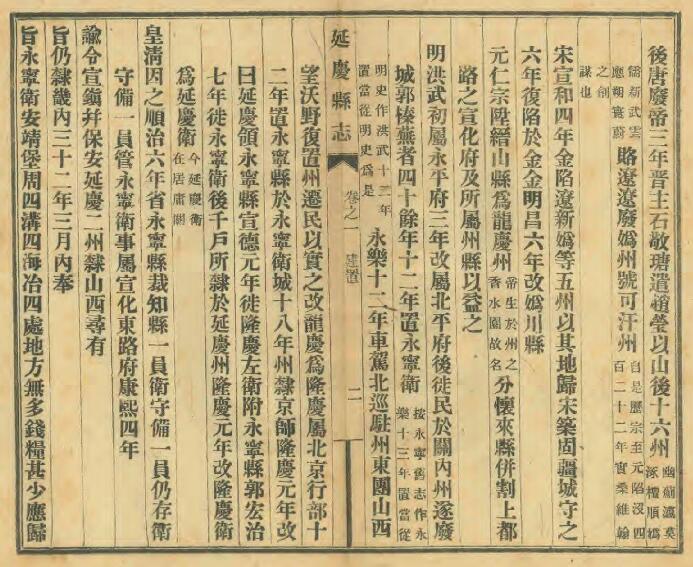 後唐廢帝三年晉主石敬瑭遣趙瑩以山後十六州幽薊瀛莫涿檀順媯
儒新武雲應朔寰蔚賂遼遼廢媯州號可汗州自是歷宗至元陷沒四百二十二年實桑維翰
之創謀也
宋宣和四年金陷遼新媯等五州以其地歸宋築固疆城守之
六年復陷於金金明昌六年改媯川縣
元仁宗陞縉山縣爲龍慶州帝生於州之香水園故名分懷來縣併割上都
路之宣化府及所屬州縣以益之
明洪武初屬永平府三年改屬北平府後徙民於關內州遂廢
城郭榛蕪者四十餘年十二年置永寧衛按永寧舊志作永樂十三年置當從
明史作洪武十三年置當從明史爲是永樂十二年車駕北巡駐州東團山西
延慶縣志 卷之一 建置 二
望沃野復置州遷民以實之改龍慶爲隆慶屬北京行部十
二年置永寧縣於永寧衛城十八年州隸京師隆慶元年改
曰延慶領永寧縣宣德元年徙隆慶左衛附永寧縣郭宏治
七年徙永寧衛後千戶所隸於延慶州隆慶元年改隆慶衛
爲延慶衛今延慶衛在居庸關
皇清因之順治六年省永寧縣裁知縣一員衛守備一員仍存衛
守備一員管永寧衛事屬宣化東路府康熙四年
諭令宣鎭幷保安延慶二州隸山西尋有
旨仍隸畿內三十二年三月內奉
旨永寧衛安靖堡周四溝四海冶四處地方無多錢糧甚少應歸